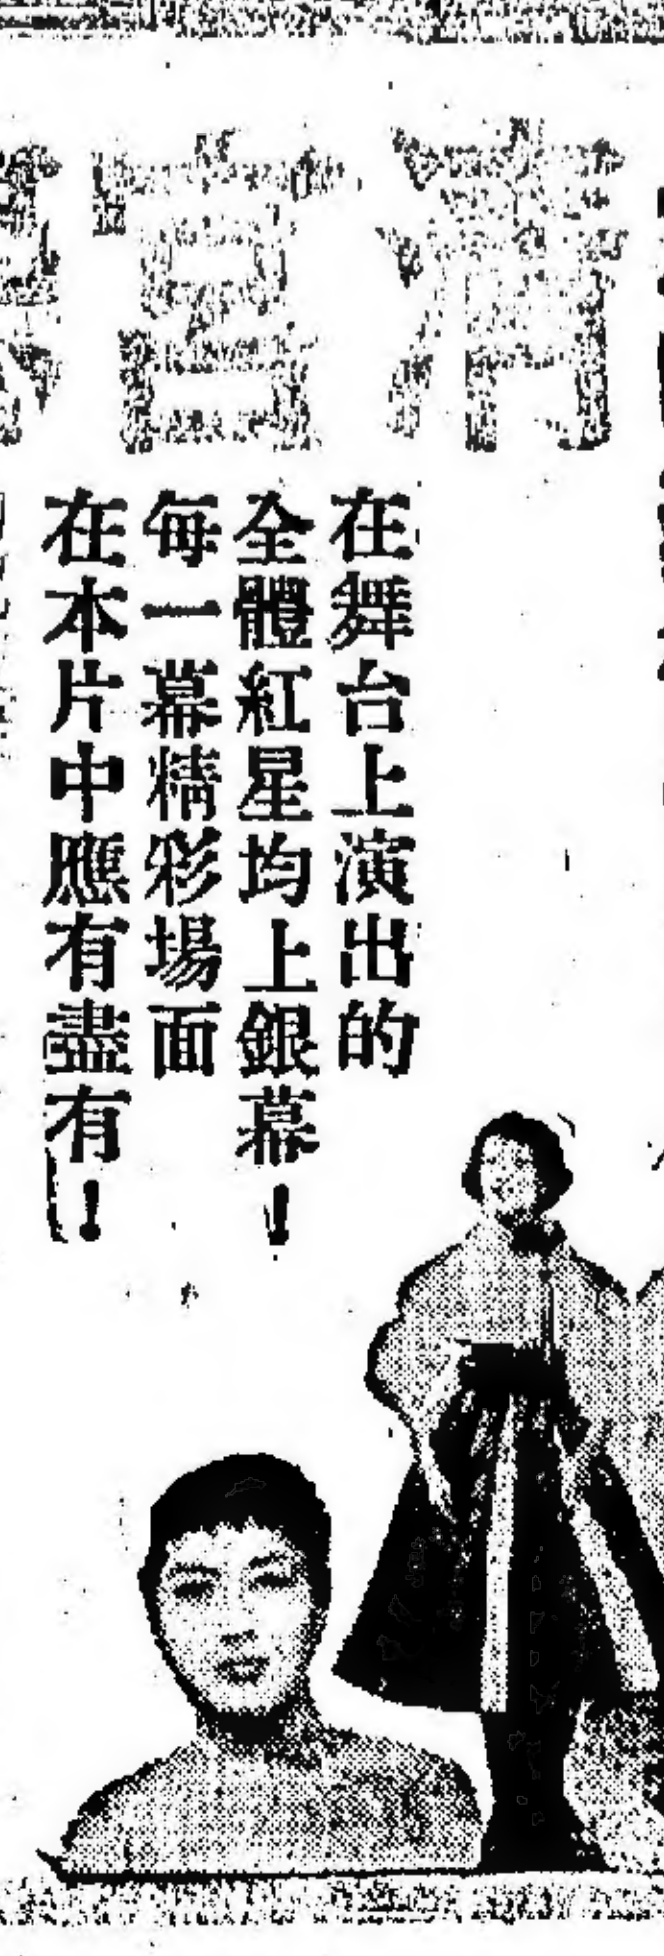 清宮
在舞台上演出的
全體紅星均上銀幕！
每一幕精彩場面
在本片中應有盡有！